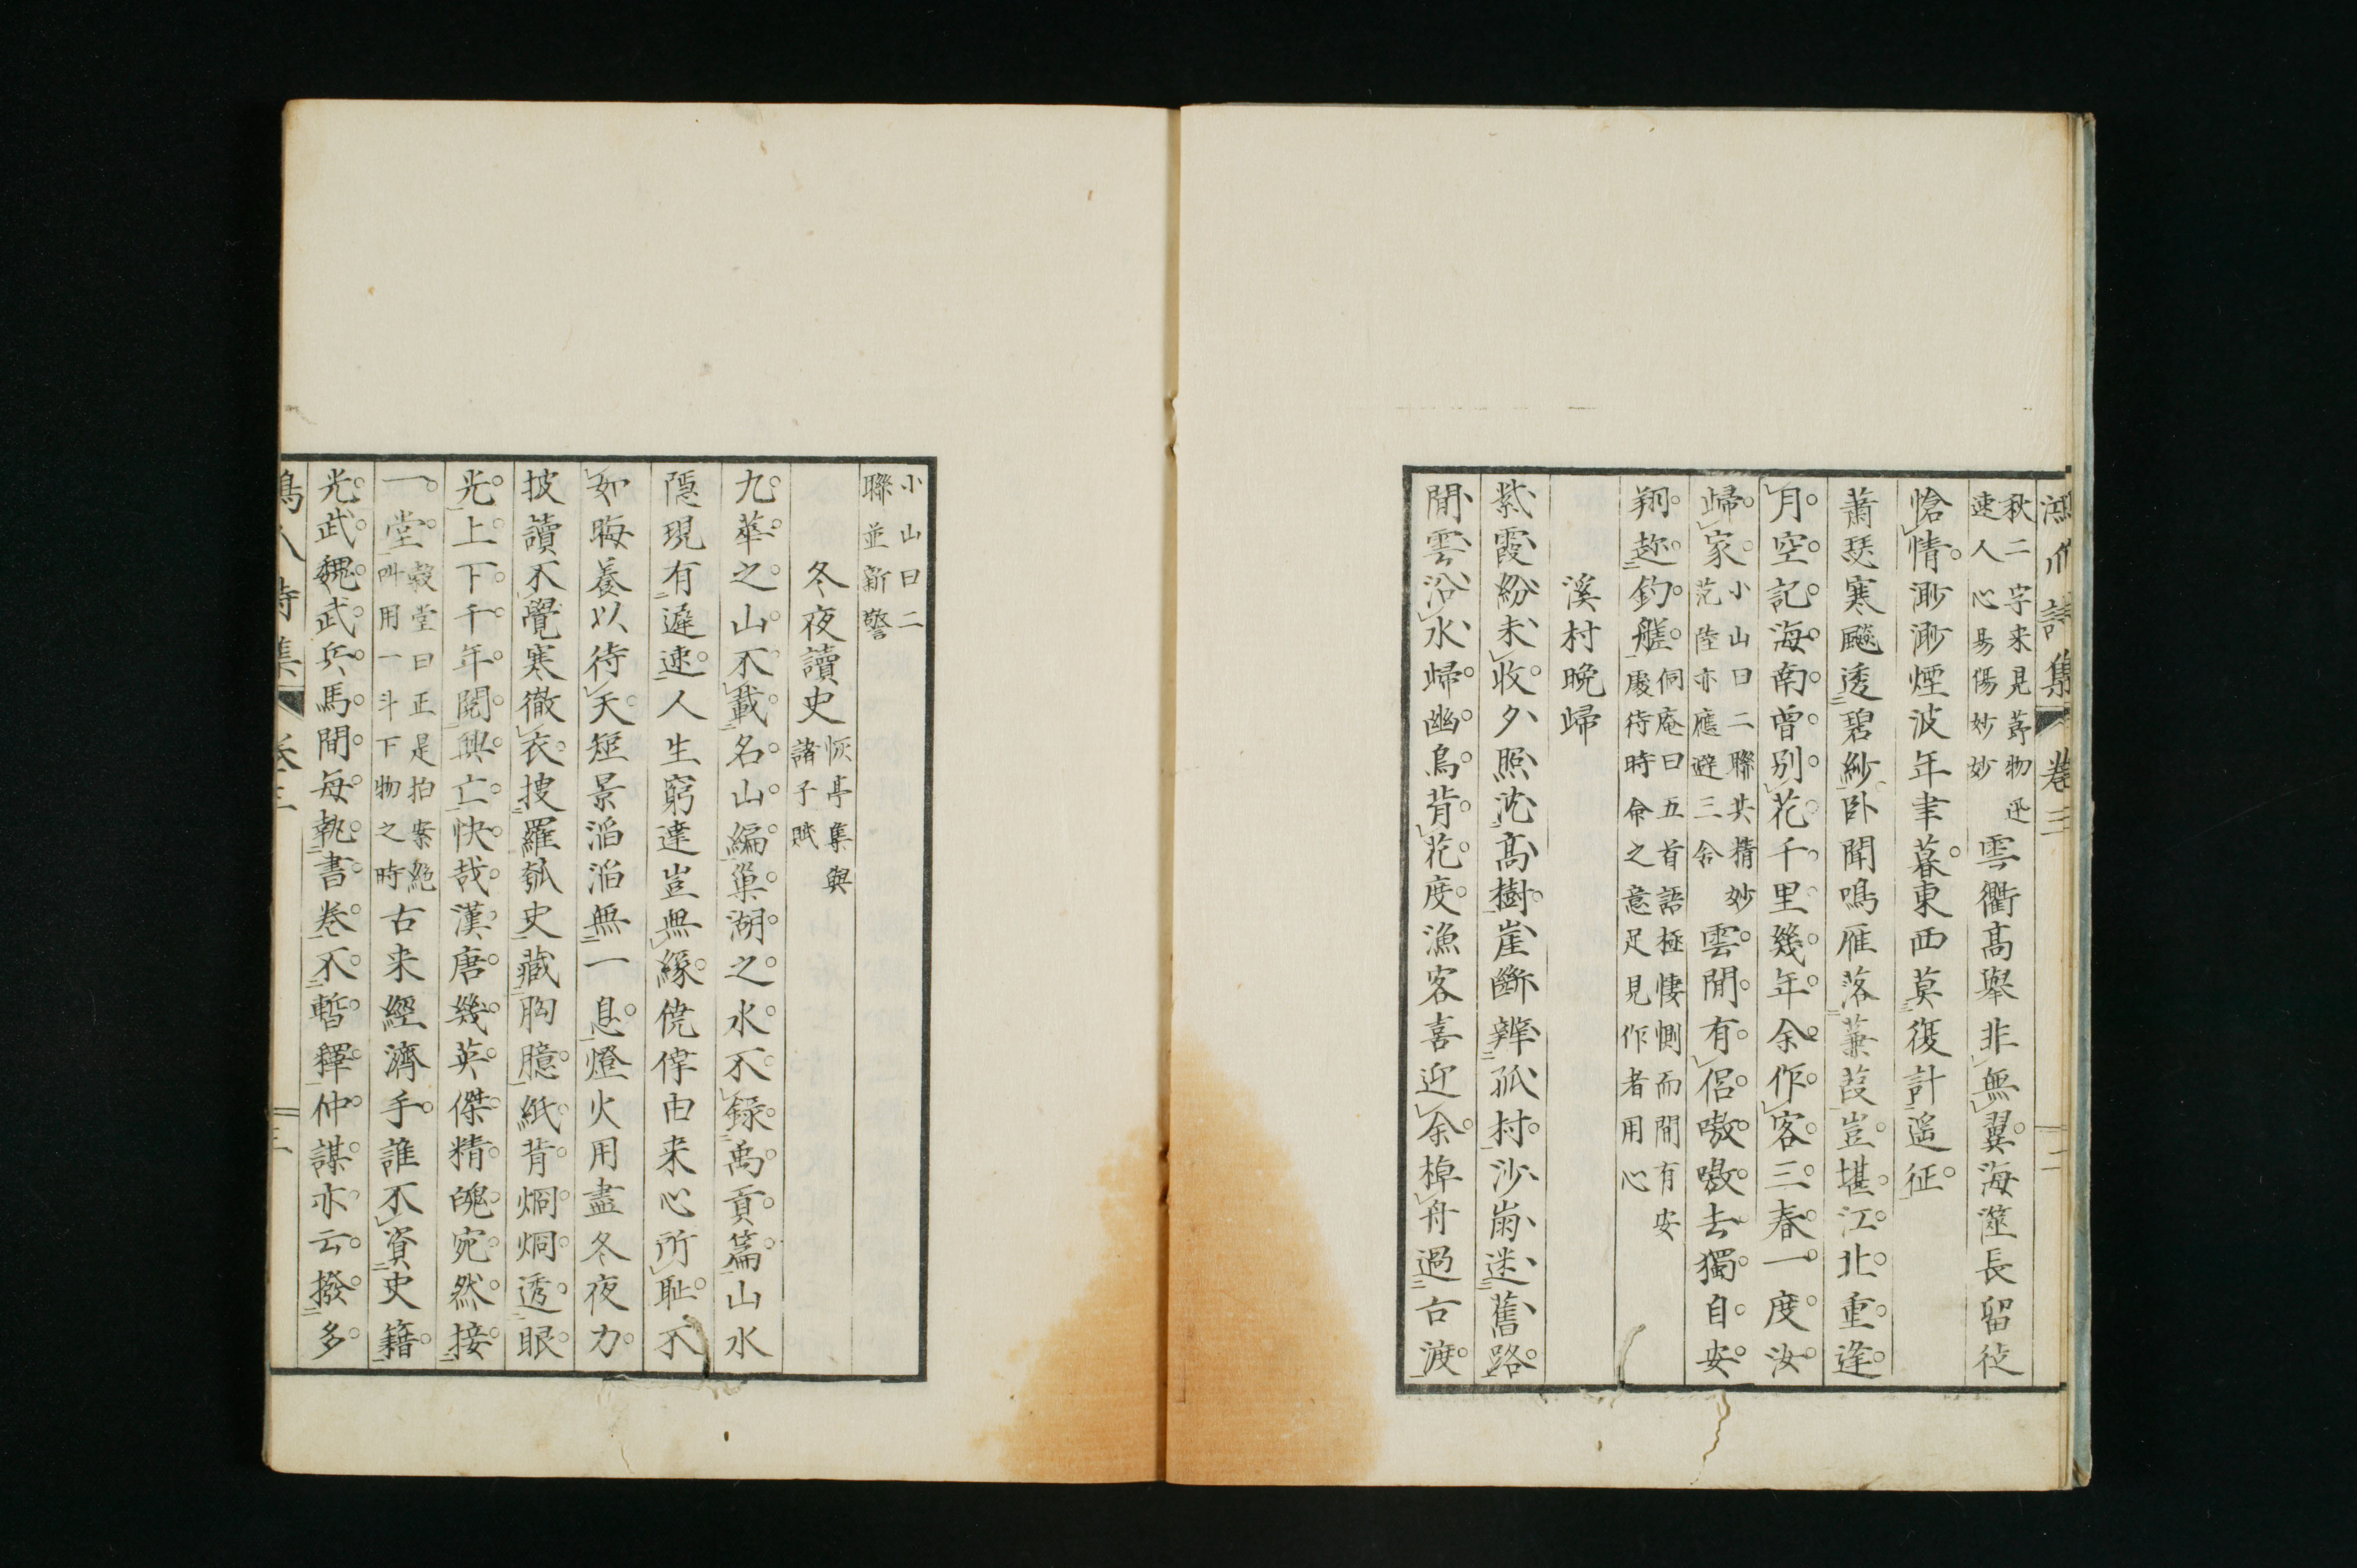 詩集 卷三 二
秋二字来見莭物迅
速人心易傷妙妙
雲衢髙舉非無翼海澨長留従
愴情渺渺煙波年聿暮東西莫復計遥征
蕭瑟寒飈透碧紗卧聞鳴雁落蒹葭豈堪江北重逢
月空記海南曾别花千里幾年余作客三春一度汝
歸家
小山曰二聯共精妙
范陸亦應避三舍
雲間有侶嗷嗷去獨自安
翔趂釣艖
侗庵曰五首語極悽惻而間有安
處待時命之意足見作者用心
溪村晩歸
紫霞紛未收夕照沈髙樹崖斷辨孤村沙崩迷舊路
閒雲沿水歸幽鳥背花度漁客喜迎余棹舟過古渡
小山曰二
聯並新警
冬夜讀史
恢亭集與
諸子賦
九華之山不載名山編巢湖之水不録禹貢篇山水
隱現有遲速人生窮達豈無緣僥倖由来心所恥不
如晦養以待天短景滔滔無一息燈火用盡冬夜力
披讀不覺寒徹衣捜羅瓠史藏胸臆紙背烱烱透眼
光上下千年閱興亡快哉漢唐幾英傑精魄宛然接
一堂
穀堂曰正是拍案絶
叫用一斗下物之時
古来經濟手誰不資史籍
光武魏武兵馬間毎執書卷不暫釋仲謀亦云撥多
詩集 卷三 三